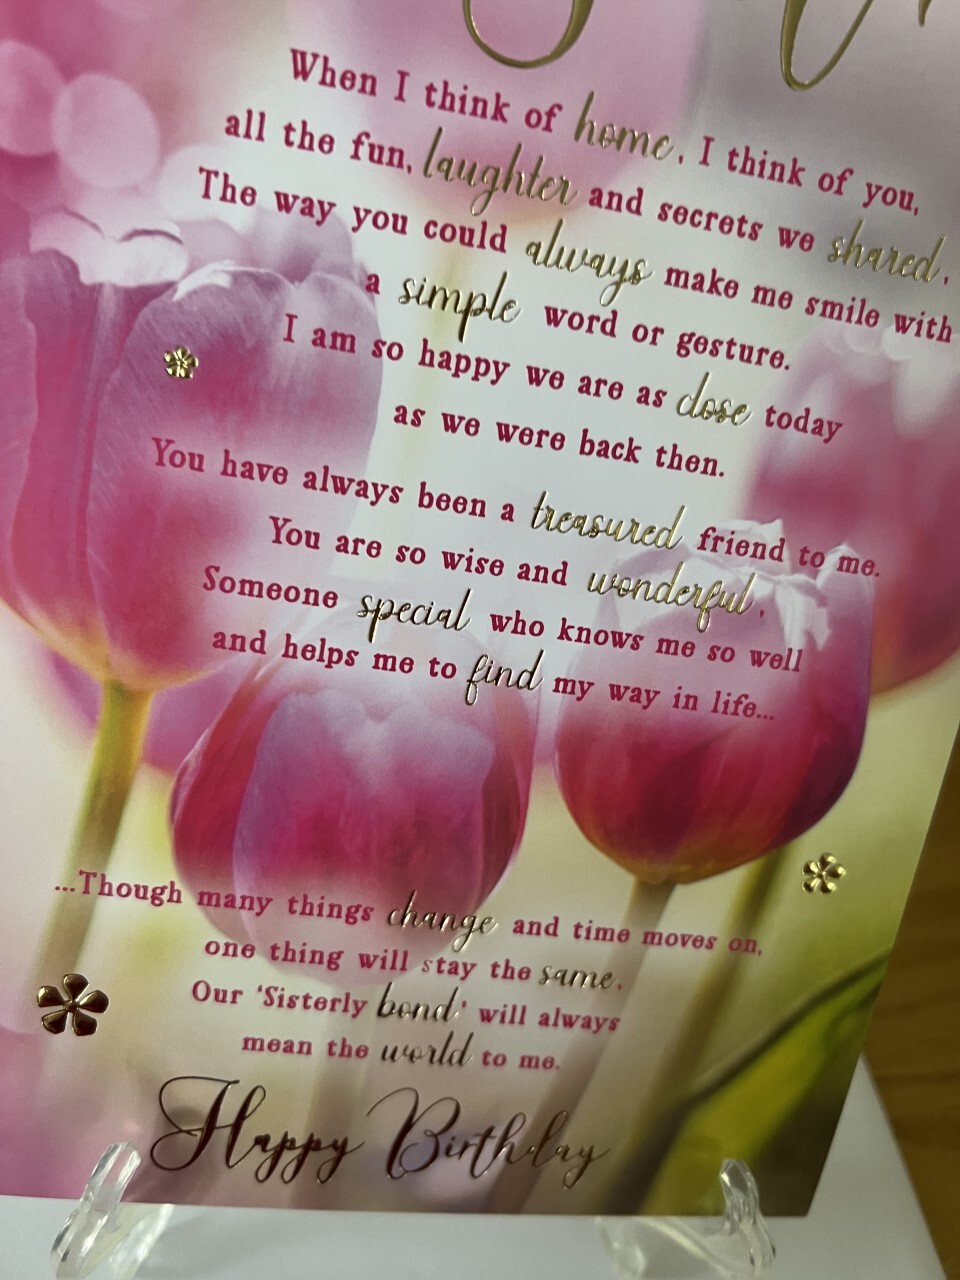 When I think of home, I think of you,
all the fun, laughter and secrets we shared.
The way you could always make me smile with
a simple word or gesture.
I am so happy we are as close today
as we were back then.
You have always been a treasured friend to me.
You are so wise and wonderful,
Someone special who knows me so well
and helps me to find my way in life...
...Though many things change and time moves on,
one thing will stay the same.
Our 'Sisterly bond' will always
mean the world to me.
Happy Birthday